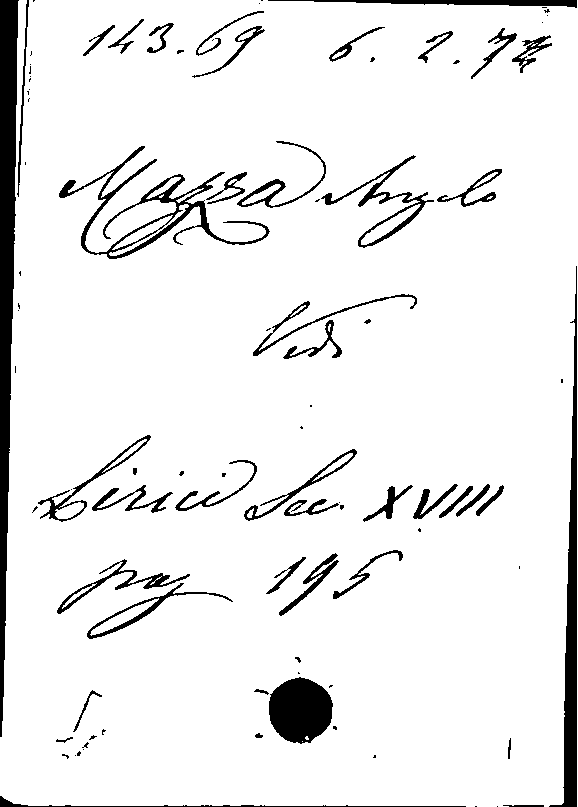 143.69 6.2.7
Mazza Angelo
Vedi
Lirici Sec. XVIII
pag 195